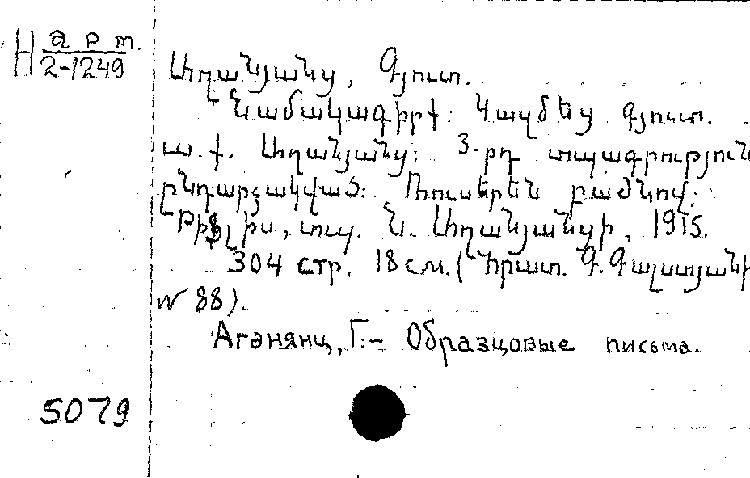 H арт.
2-1249
Աղանյանց, Գյուտ.
Նամակագիրք: Կազմեց Գյուտ.
ա. ք. Աղանյանց: 3-րդ տպագրություն
ընդարձակված: Ռուսերեն բաժնով:
Թիֆլիս, տպ. Ն. Աղանյանցի, 1915.
304 стр. 18 см. (Հրատ.
N 88).
Аганянц, Г. - Образцовые письма.
5079